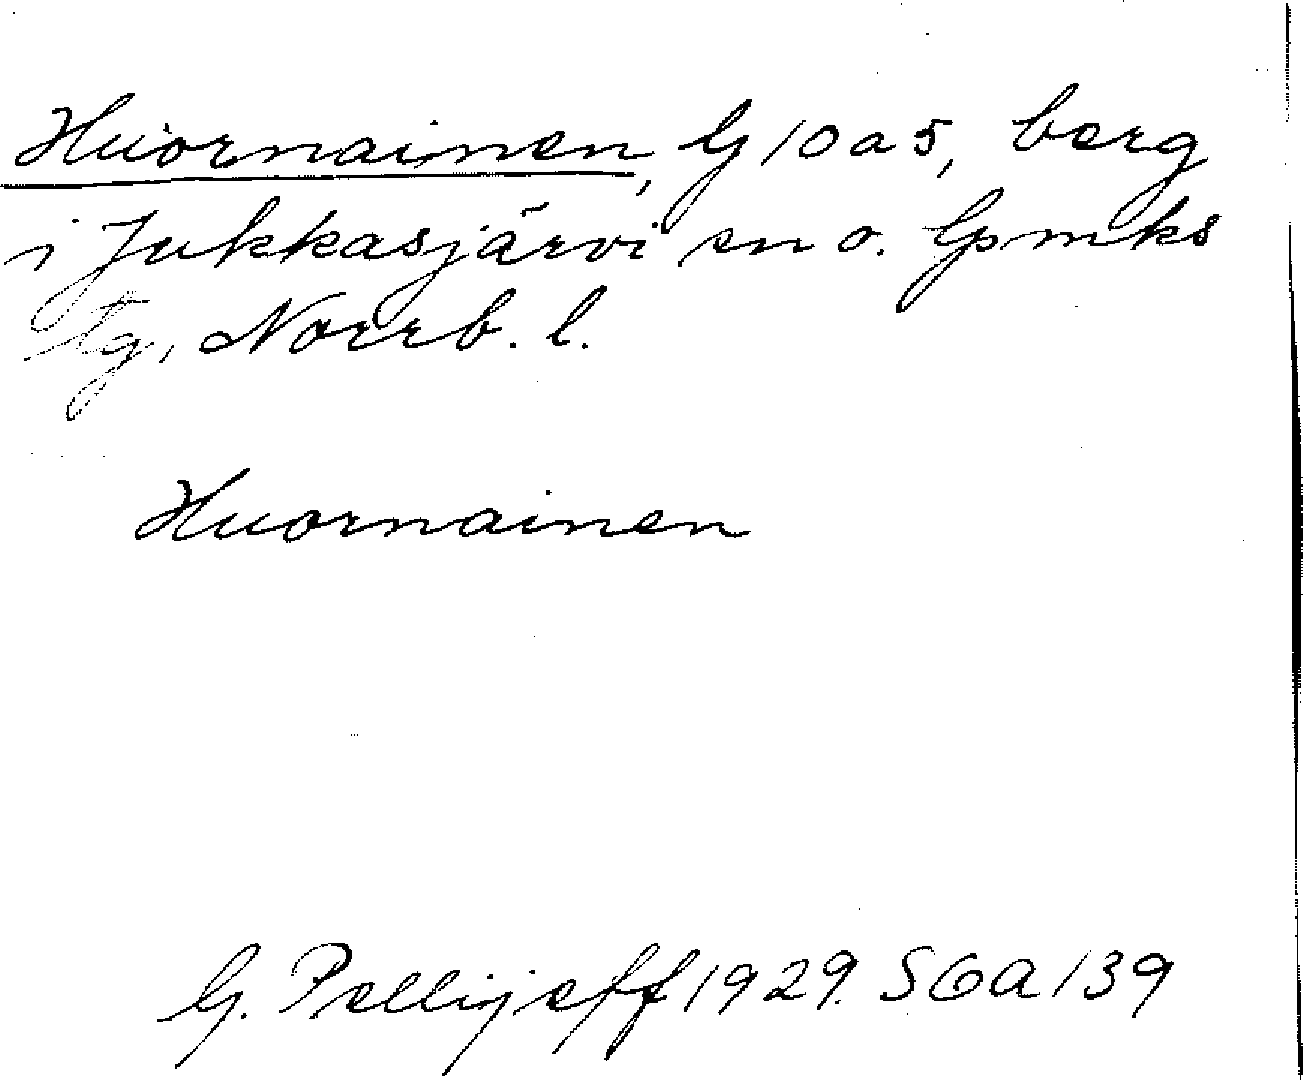 Huornainen, G 10 a 5, berg
i Jukkasjärvi sn o. Lpmks
tg, Norrb. l.
Huornainen
G. Pellijeff 1929. SGA 139